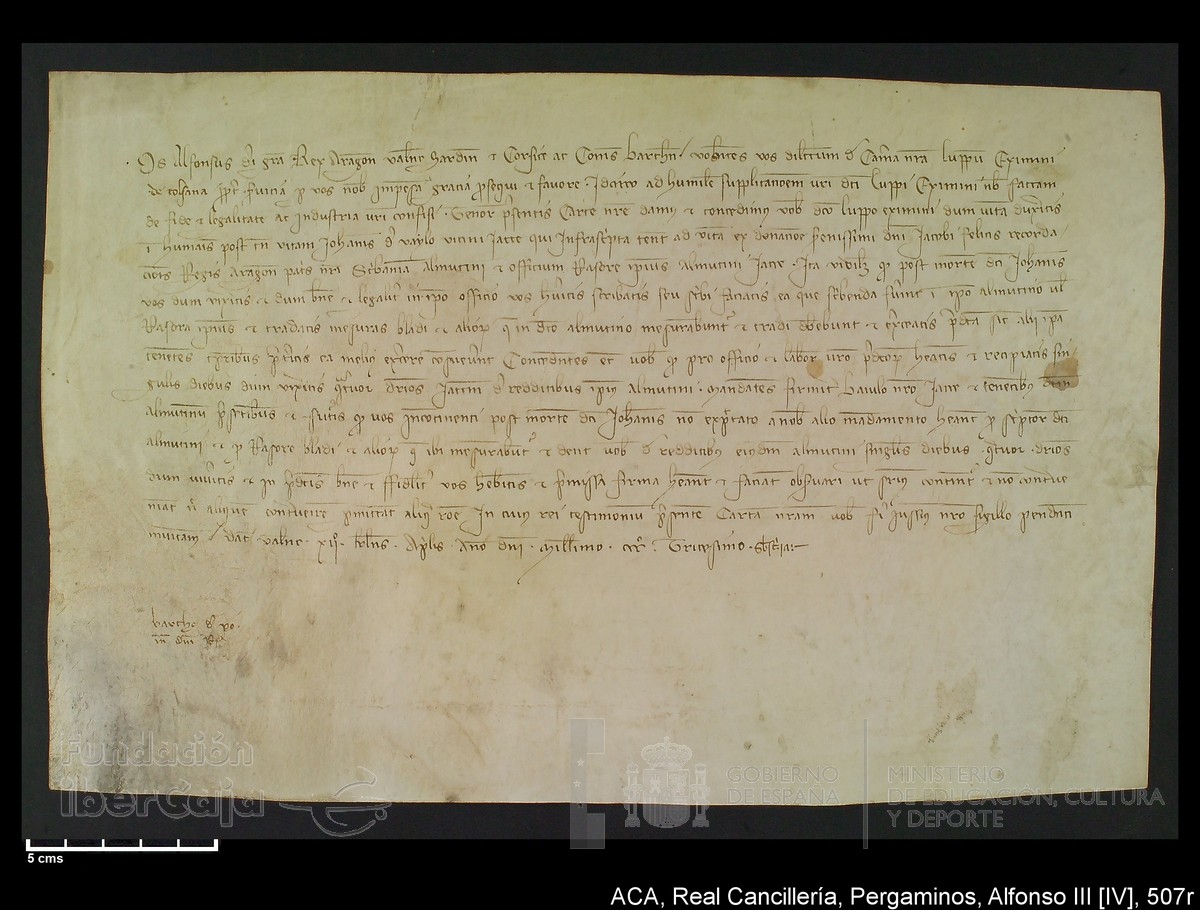 Nos Alfonsus dei gra Rex Aragon Valene Sardine et Corsice ac Comes Barchn. volentes vos dilectum de Camera nra Luppum Eximini
de tolsana servicia per vos nob impensa gracia prosequi et favore. Idcirco ad humilem supplicacoem vri dci Luppi Eximini nob factam
de fide et legalitate ac industria vri confisi. Tenor presentis Carte nre damus et concedimus vob dco Luppo eximini dum vitam duxeritis
in humanis post tn vitam Johanis vicini Jacce qui infrascripta tenet ad vitam ex donacoe serenissimi dni Jacobi felicis recorda
cois Regis Aragon patris nri Scribaniam almutini et officium Rasore ipius Almutini Jacce. Ita videlz qd post mortem dci Johanis
vos dum vixeritis et dum bene et legalir in ipo officio vos habueritis scribatis seu scribi faciatis ea que scribenda fuerint in ipo almutino vl
Rasora ipius et tradatis mesuras bladi et alior que in dco almutino mesurabuntr et tradi debebunt et exerceatis predca sic alii ipa
tenentes temporibus preteritis ea melius exercere consueverunt Concedentes et vob qd pro officio et labore vro predcor heatis et recipiatis sin
gulis diebus dum vixeritis quatuor drios Jaccen de redditibus ipius almutini. Mandantes firmiter Baiulo nro Jacce et tenentibus dcm
almutinum presentibus et futuris qd vos incontinenti post mortem dci Johanis no expectato a nob alio mandamento heant pro scriptore dci
almutini et pro Rasore bladi et alior que ibi mesurabunt et dent vob de redditibus eiusdem almutini singulis diebus quatuor drios
dum vixeritis et in predcis bene et fidelir vos habueritis et premissa firma heant et faciat observari ut superius continetr et no contrave
niant nec aliquem contravenire permittat aliqua roe. In cuius rei testimonium presente Carta nram vob fieri iussimus nro sigillo pendenti
munitam. Dat Valene. XII. klns. Aplis. Ano dni. Millimo. CCC. Tricesimo.
5 cms
Fundación
iberCaja
GOBIERNO
DE ESPAÑA
MINISTERIO
DE EDUCACIÓN, CULTURA
Y DEPORTE
ACA, Real Cancillería, Pergaminos, Alfonso III [IV], 507r